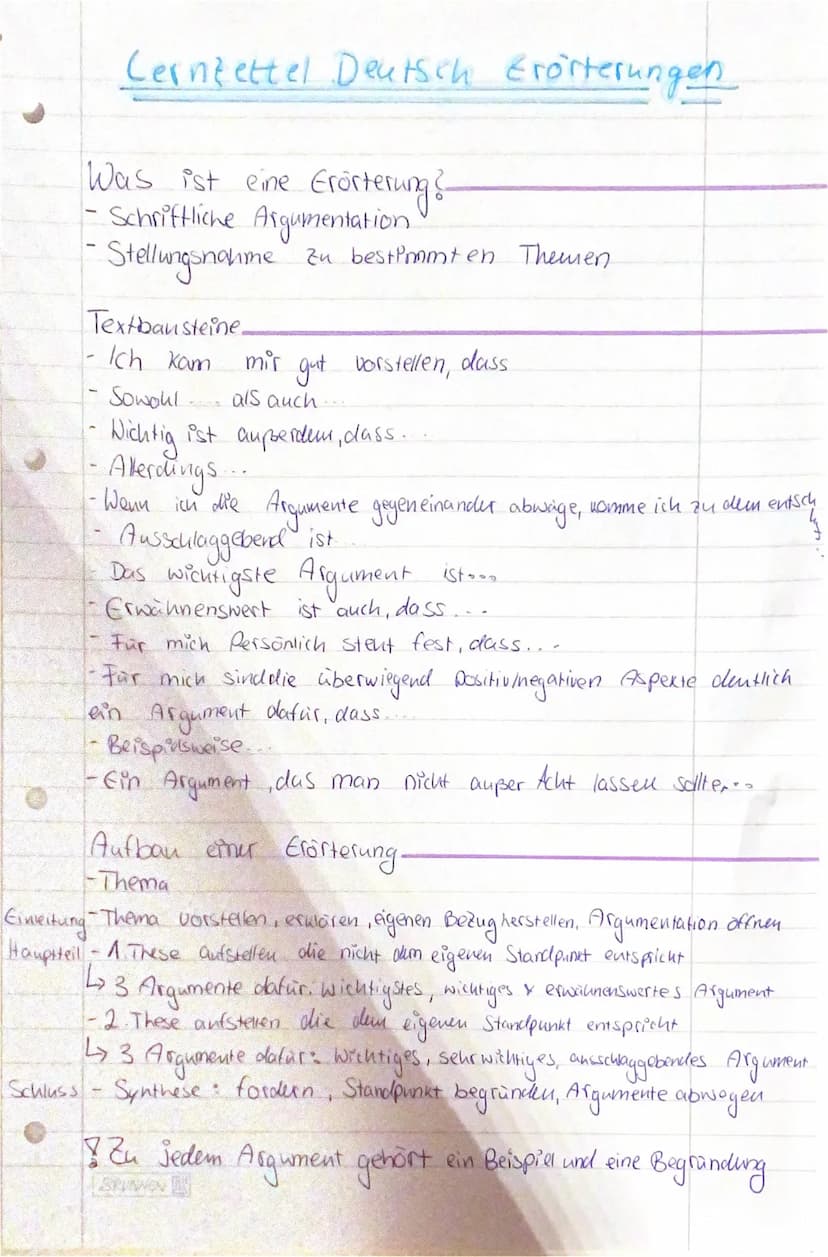 Lernzettel Deutsch Erörterungen
Was ist eine Erörterung?
- Schriftliche Argumentation
- Stellungsnahme zu bestimmten Themen
Textbausteine
- Ich kann mir gut vorstellen, dass
- Sowohl .... als auch...
- Wichtig ist außerdem, dass...
- Allerdings...
- Wenn ich die Argumente gegeneinander abwäge, komme ich zu dem entsch
- Ausschlaggebend ist
Das wichtigste Argument ist...
- Erwähnenswert ist auch, dass...
- Für mich Persönlich steht fest, dass...
- Für mich sind die überwiegend positiv/negativen Aspekte deutlich
ein Argument dafür, dass....
- Beispielsweise...
- Ein Argument, das man nicht außer Acht lassen sollte,...
Aufbau einer Erörterung
- Thema
Einleitung - Thema vorstellen, erklären, eigenen Bezug herstellen, Argumentation öffnen
Hauptteil - 1. These aufstellen die nicht dem eigenen Standpunkt entspricht
↳ 3 Argumente dafür: wichtigstes, wichtiges & erwähnenswertes Argument
- 2. These aufstellen die dem eigenen Standpunkt entspricht
↳ 3 Argumente dafür: wichtiges, sehr wichtiges, ausschlaggebendes Argument
Schluss - Synthese: fordern, Standpunkt begründen, Argumente abwegen
! Zu jedem Argument gehört ein Beispiel und eine Begründung
BRUNNEN